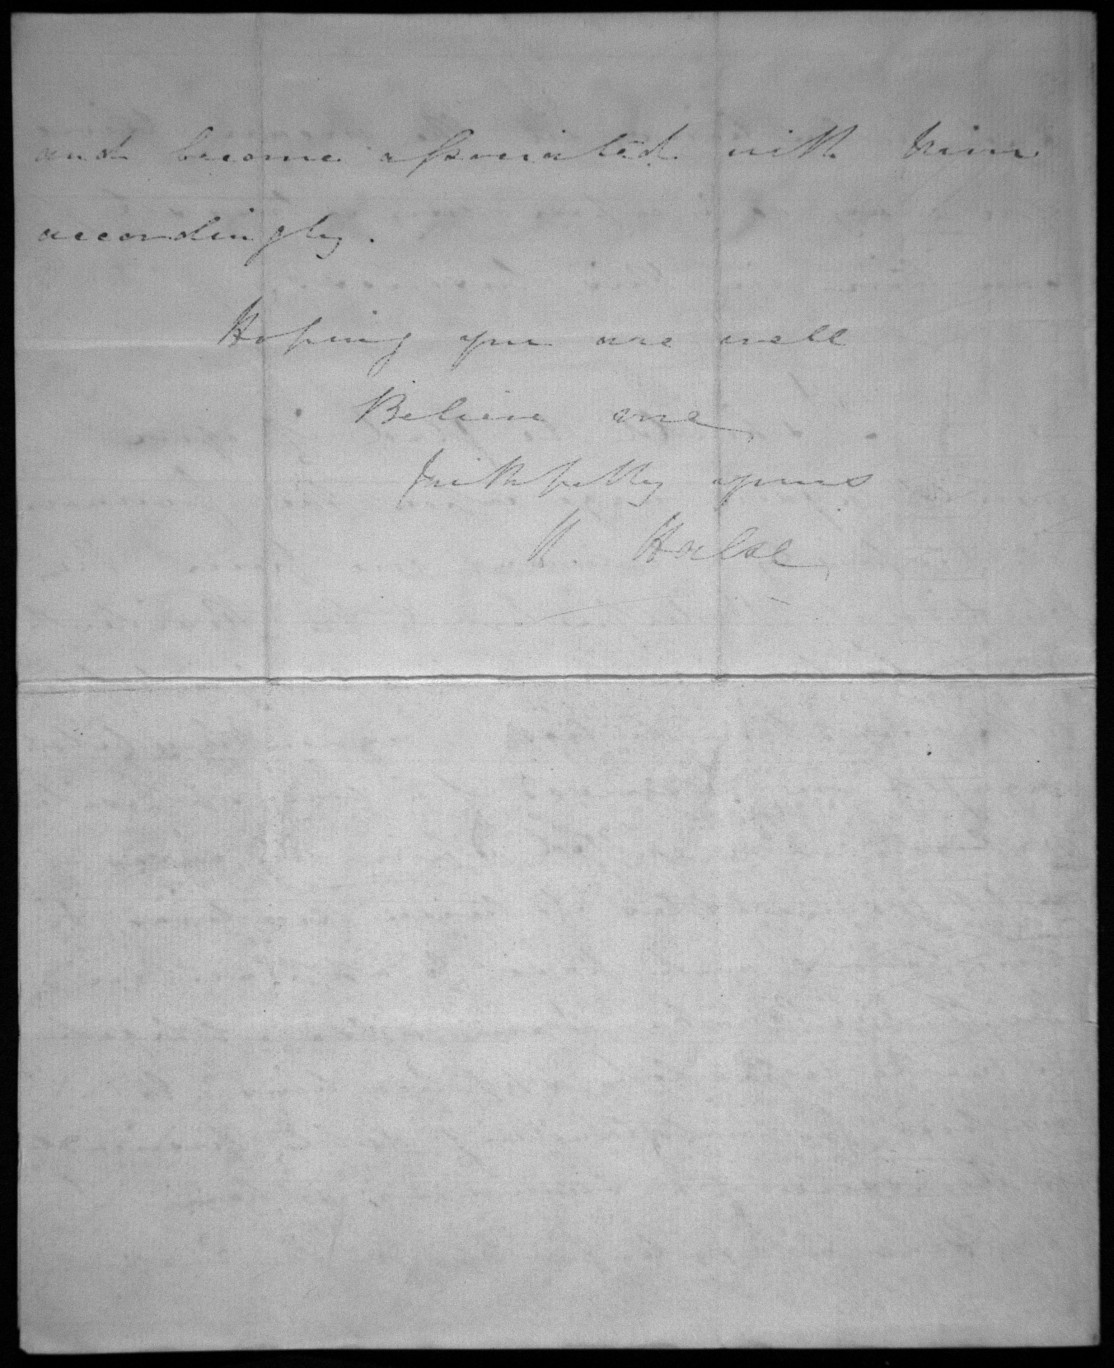 and become associated with him
accordingly.
Hoping you are well
Believe me,
Faithfully yours
H. Halse